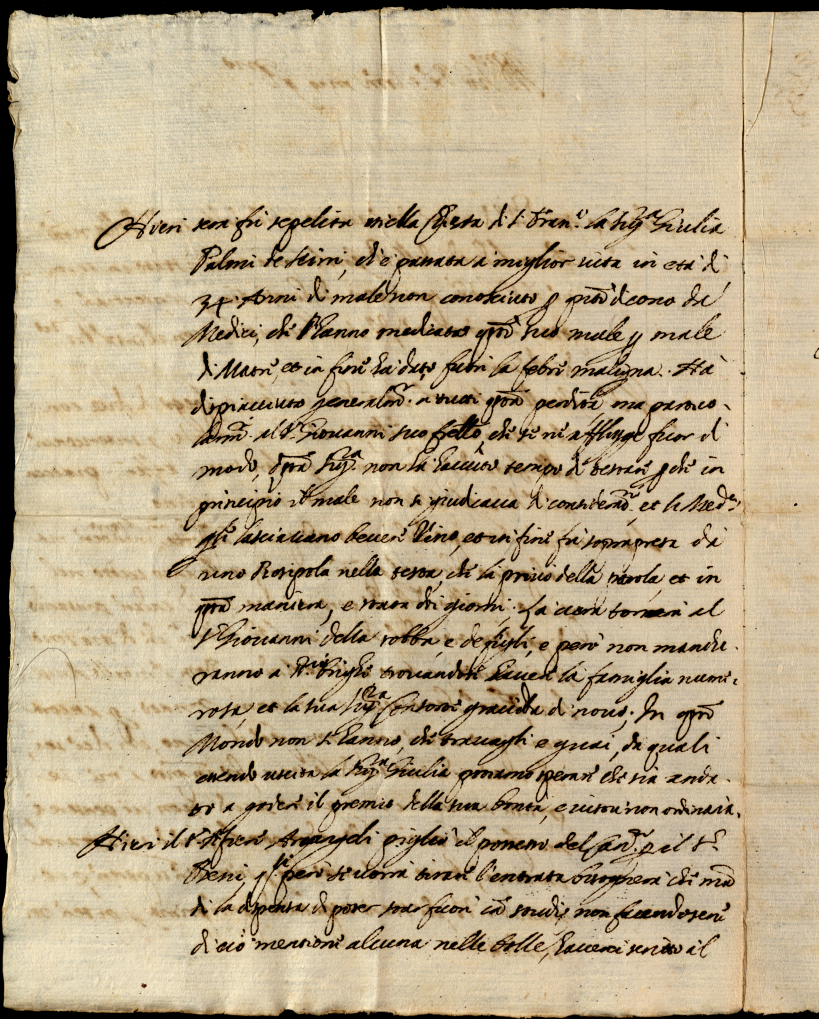 Hieri sera fù sepelita nella Chiesa di S. Fran.co la Sig.ra Giulia
Palmi de che è passata a miglior vita in età di
34 Anni di male non conosciuto p q.to dicono da
Medici, che l'hanno medicata q.to suo male p male
di Matre, et in fine hà dato fuori la febre maligna. Hà
dispiacciuto general.te a tutti q.ta perdita ma partico-
larm.te al S.r Giovanni suo frello, che se ne affligge fuor di
modo, q.ta Sig.ra non hà havuto tempo di testare p che in
principio il male non si giudicava di considerat.ne, et li Med.ci
gli lasciavano bevere Vino, et in fine fù sopra presa da
una Resipola nella testa, che la privò della parola, et in
q.ta maniera, e stata dei giorni. La cura tornerà al
S.r Giovanni della robba, e de figli, e però non manche-
ranno a brighe trovandosi havere la famiglia nume-
rosa, et la sua Sig.ra Consorte gravida di novo. In q.to
Mondo non s'hanno, che travagli e guai, da quali
essendo uscita la Sig.ra Giulia possiamo sperare che sia anda-
ta a godere il premio della sua bontà, e virtù non ordinaria.
Hieri il S.r Arcangeli pigliò il possesso del p il S.r
Beni, però se vorrà tirare l'entrata bisognerà che
di la dispensa di poter star fuori non facendosene
di ciò mentione alcuna nelle bolle, havendo scritto il